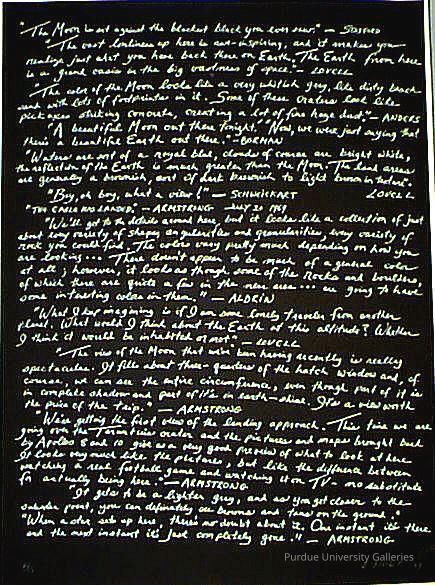 "The Moon is set against the blackest black you ever saw." — STAFFORD
"The vast loneliness up here is awe-inspiring, and it makes you
realize just what you have back there on Earth. The Earth from here
is a grand oasis in the big vastness of space." — LOVELL
"The color of the Moon looks like a very whitish grey, like dirty beach
sand with lots of footprints in it. Some of these craters look like
pick axes striking concrete, creating a lot of fine haze dust." — ANDERS
"A beautiful Moon out there tonight." "Now, we were just saying that
there's a beautiful Earth out there." — BORMAN
"Waters are sort of a royal blue, clouds of course are bright white,
the reflection of the Earth is much greater than the Moon. The land areas
are generally a brownish, sort of dark brownish to light brown in texture".
LOVELL
"Boy, oh boy, what a view!" — SCHWEICKART
"THE EAGLE HAS LANDED." — ARMSTRONG — JULY 20 1969
"We'll get to the details around here, but it looks like a collection of just
about every variety of shapes, angularities and granularities, every variety of
rock you could find. The colors vary pretty much depending on how you
are looking ... There doesn't appear to be much of a general color
at all; however, it looks as though some of the Rocks and boulders,
of which there are quite a few in the near area ... are going to have
some interesting colors in them." — ALDRIN
"What I keep imagining is if I am some lonely traveler from another
planet. What would I think about the Earth at this altitude? Whether
I think it would be inhabited or not" — LOVELL
"The view of the Moon that we've been having recently is really
spectacular. It fills about three-quarters of the hatch window and, of
course, we can see the entire circumference, even though part of it is
in complete shadow and part of it's in earth-shine. It's a view worth
the price of the trip." — ARMSTRONG
"We're getting the first view of the landing approach. This time we are
going over the Taruntius crater and the pictures and maps brought back
by Apollos 8 and 10 give us a very good preview of what to look at here.
It looks very much like the pictures, but like the difference between
watching a real football game and watching it on TV — no substitute
for actually being here." — ARMSTRONG
"It gets to be a lighter grey, and as you get closer to the
subsolar point, you can definitely see browns and tans on the ground."
"When a star sets up here, there's no doubt about it. One instant it's there
and the next instant it's just completely gone." — ARMSTRONG
Purdue University Galleries